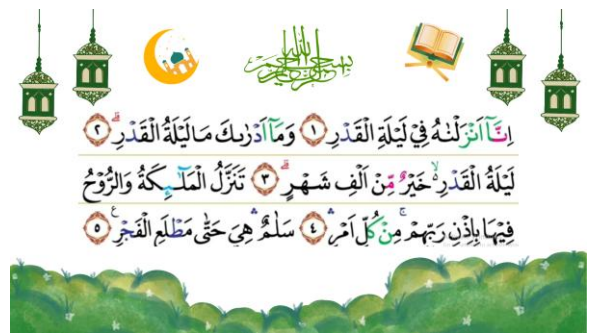 بِسْمِ اللهِ الرَّحْمٰنِ الرَّحِيْمِ
اِنَّآ اَنْزَلْنٰهُ فِيْ لَيْلَةِ الْقَدْرِ ۗ ١ وَمَآ اَدْرٰىكَ مَا لَيْلَةُ الْقَدْرِ ۗ ٢
لَيْلَةُ الْقَدْرِ ۙ خَيْرٌ مِّنْ اَلْفِ شَهْرٍ ۗ ٣ تَنَزَّلُ الْمَلٰۤىِٕكَةُ وَالرُّوْحُ
فِيْهَا بِاِذْنِ رَبِّهِمْ ۚ مِنْ كُلِّ اَمْرٍ ۛ ٤ سَلٰمٌ ۛ هِيَ حَتّٰى مَطْلَعِ الْفَجْرِ ࣖ ٥